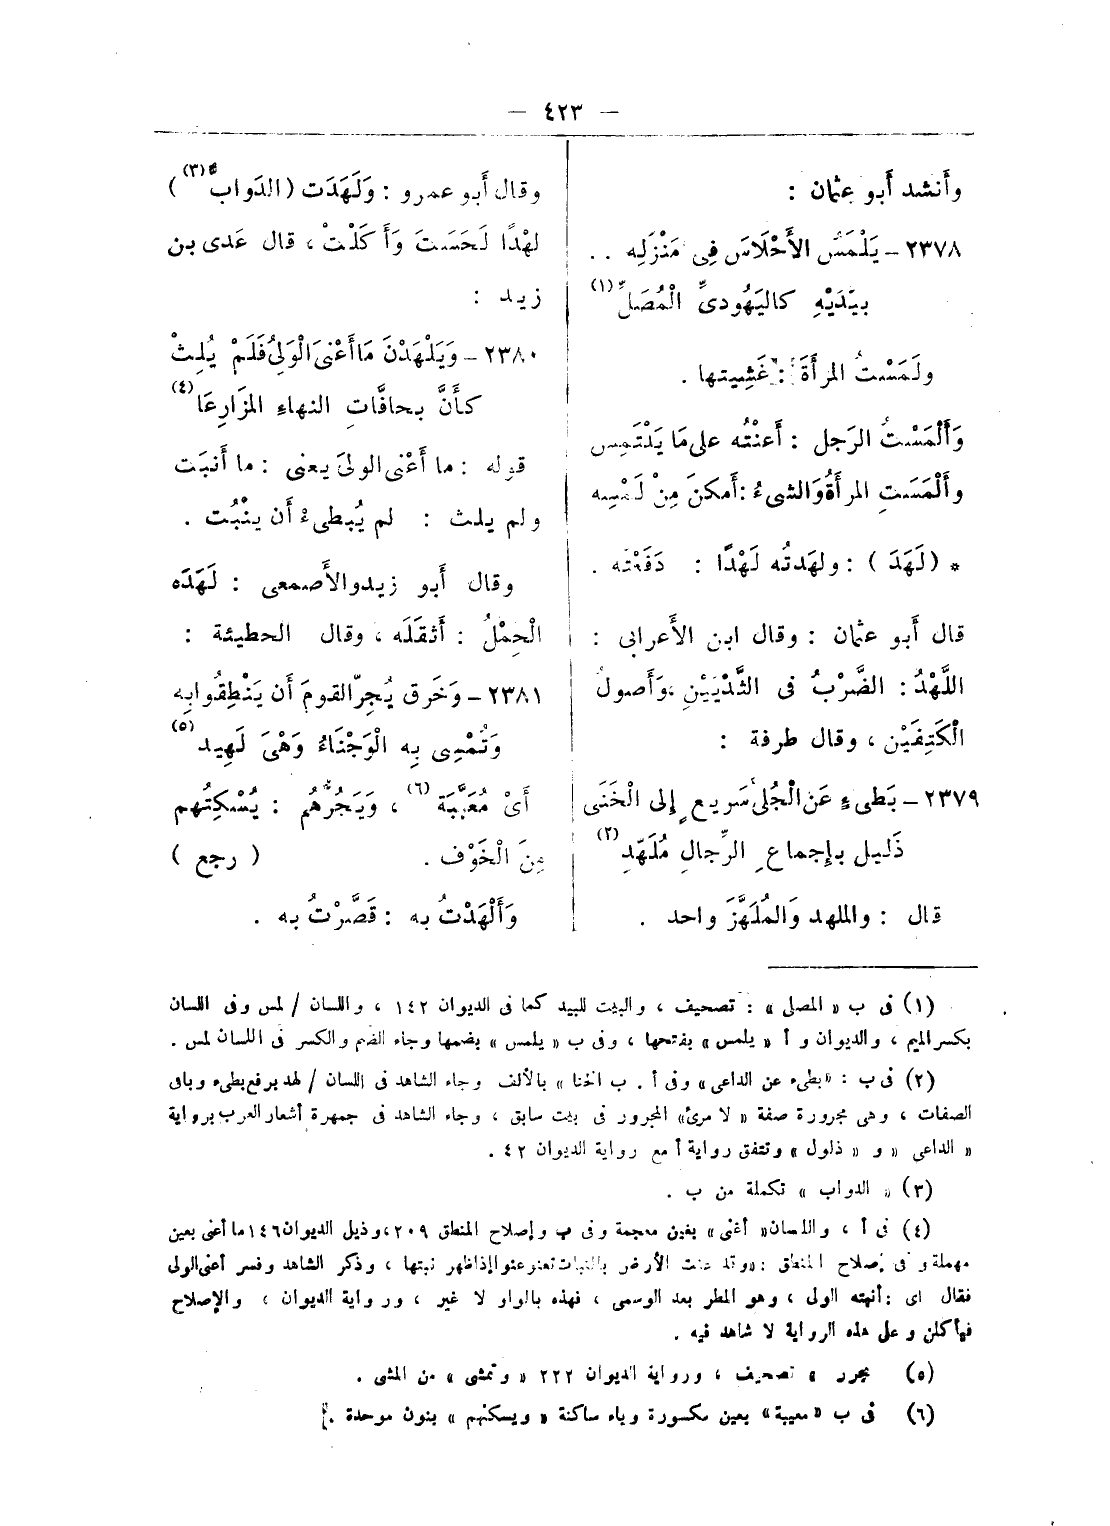 — ٤٢٣ —
وأَنشد أَبو عثمان :
٢٣٧٨ – يَلْمَسُ الأَحْلَاسَ فِى مَنْزَلِه . .
بيَدَيْهِ كاليَهُودىِّ الْمُصَلِّ (١)
ولَمَسْتُ المرأَةَ : غَشِيتها .
وَأَلْمَسْتُ الرَجل : أَعنْتُه على مَا يَلْتَمِس
وأَلْمَسَتِ المرأَةُ وَالشىءُ : أَمكنَ مِنْ لَمْسِه
* (لَهَدَ) : ولهَدتُه لَهْدًا : دَفَعْتُه .
قال أَبو عثمان : وقال ابن الأَعرابى :
اللَّهْدُ : الضَّرْبُ فى الثَّدْيَيْنِ ، وَأُصولُ
الْكَتِفَيْن ، وقال طرفة :
٢٣٧٩ – بَطىءٍ عَن الْجُلىَّ سَريع إِلى الْخَنَى
ذَليل بإِجماعِ الرِّجالِ مُلَهَّدِ (٢)
قال : والملهد وَالمُلَهَّزَ واحد .
وقال أَبو عمرو : وَلَهَدَت (الدَواب (٣))
لهْدًا لَحَسَتَ وَأَكَلْتْ ، قال عَدى بن
زيد :
٢٣٨٠ – وَيَلْهَدْنَ مَا أَعْنَى الْوَلِىُّ فَلَمْ يُلِثْ
كأَنَّ بحافَّاتِ النهاءِ المَزَارِعَا (٤)
قوله : ما أَعْنى الولىَ يعنى : ما أَنبَت
ولم يلث : لم يُبطىءْ أَن ينْبُت .
وقال أَبو زيد والأَصمعى : لَهَدَه
الْحِمْلُ : أَثقَلَه ، وقال الحطيئة :
٢٣٨١ – وَخَرق يُجِرّ القومَ أَن يَنْطِقُوا بِه
وَتُمْسِى بِه الْوَجْنَاءُ وَهْىَ لَهِيد (٥)
أَىْ مُعَيَّبَة (٦) ، وَيَجُرُّهُم : يُسْكِتُهم
مِنَ الْخَوْف . (رجع)
وَأَلْهَدْتُ به : قَصَّرْتُ به .
(١) فى ب « المصلى » : تصحيف ، والبيت للبيد كما فى الديوان ١٤٢ ، واللسان / لمس وفى اللسان
بكسر الميم ، والديوان و أ « يلمس » بفتحها ، وفى ب « يلمس » بضمها وجاء الضم والكسر فى اللسان لمس .
(٢) فى ب : « بطىء عن الداعى » وفى أ . ب الخنا » بالألف وجاء الشاهد فى اللسان / لهد برفع بطىء وباقى
الصفات ، وهى مجرورة صفة « لامرئ » المجرور فى بيت سابق ، وجاء الشاهد فى جمهرة أشعار العرب برواية
« الداعى » و « ذلول » وتتفق رواية أ مع رواية الديوان ٤٢ .
(٣) « الدواب » تكملة من ب .
(٤) فى أ ، واللسان « أغنى » بغين معجمة وفى ب وإصلاح المنطق ٢٠٩ ، وذيل الديوان ١٤٦ ما أعنى بعين
مهملة وفى إصلاح المنطق : « وقد عنت الأرض بالنبات تعنو عنوا إذا ظهر نبتها ، وذكر الشاهد وفسر أعنى الولى
فقال أى : أنبته الولى ، وهو المطر بعد الوسمى ، فهذه بالواو لا غير ، ورواية الديوان ، والإصلاح
فيأكلن وعلى هذه الرواية لا شاهد فيه .
(٥) يجرر » تصحيف ، ورواية الديوان ٢٢٢ « وتمشى » من المشى .
(٦) فى ب « معيبة » بعين مكسورة وياء ساكنة « ويسكنهم » بنون موحدة .